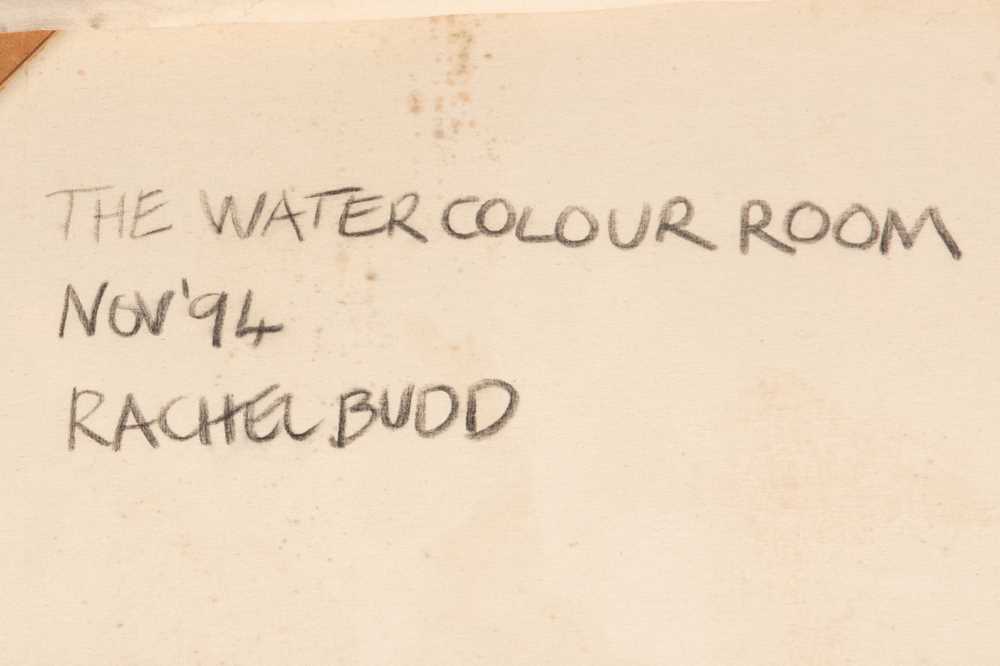 THE WATERCOLOUR ROOM
NOV '94
RACHEL BUDD